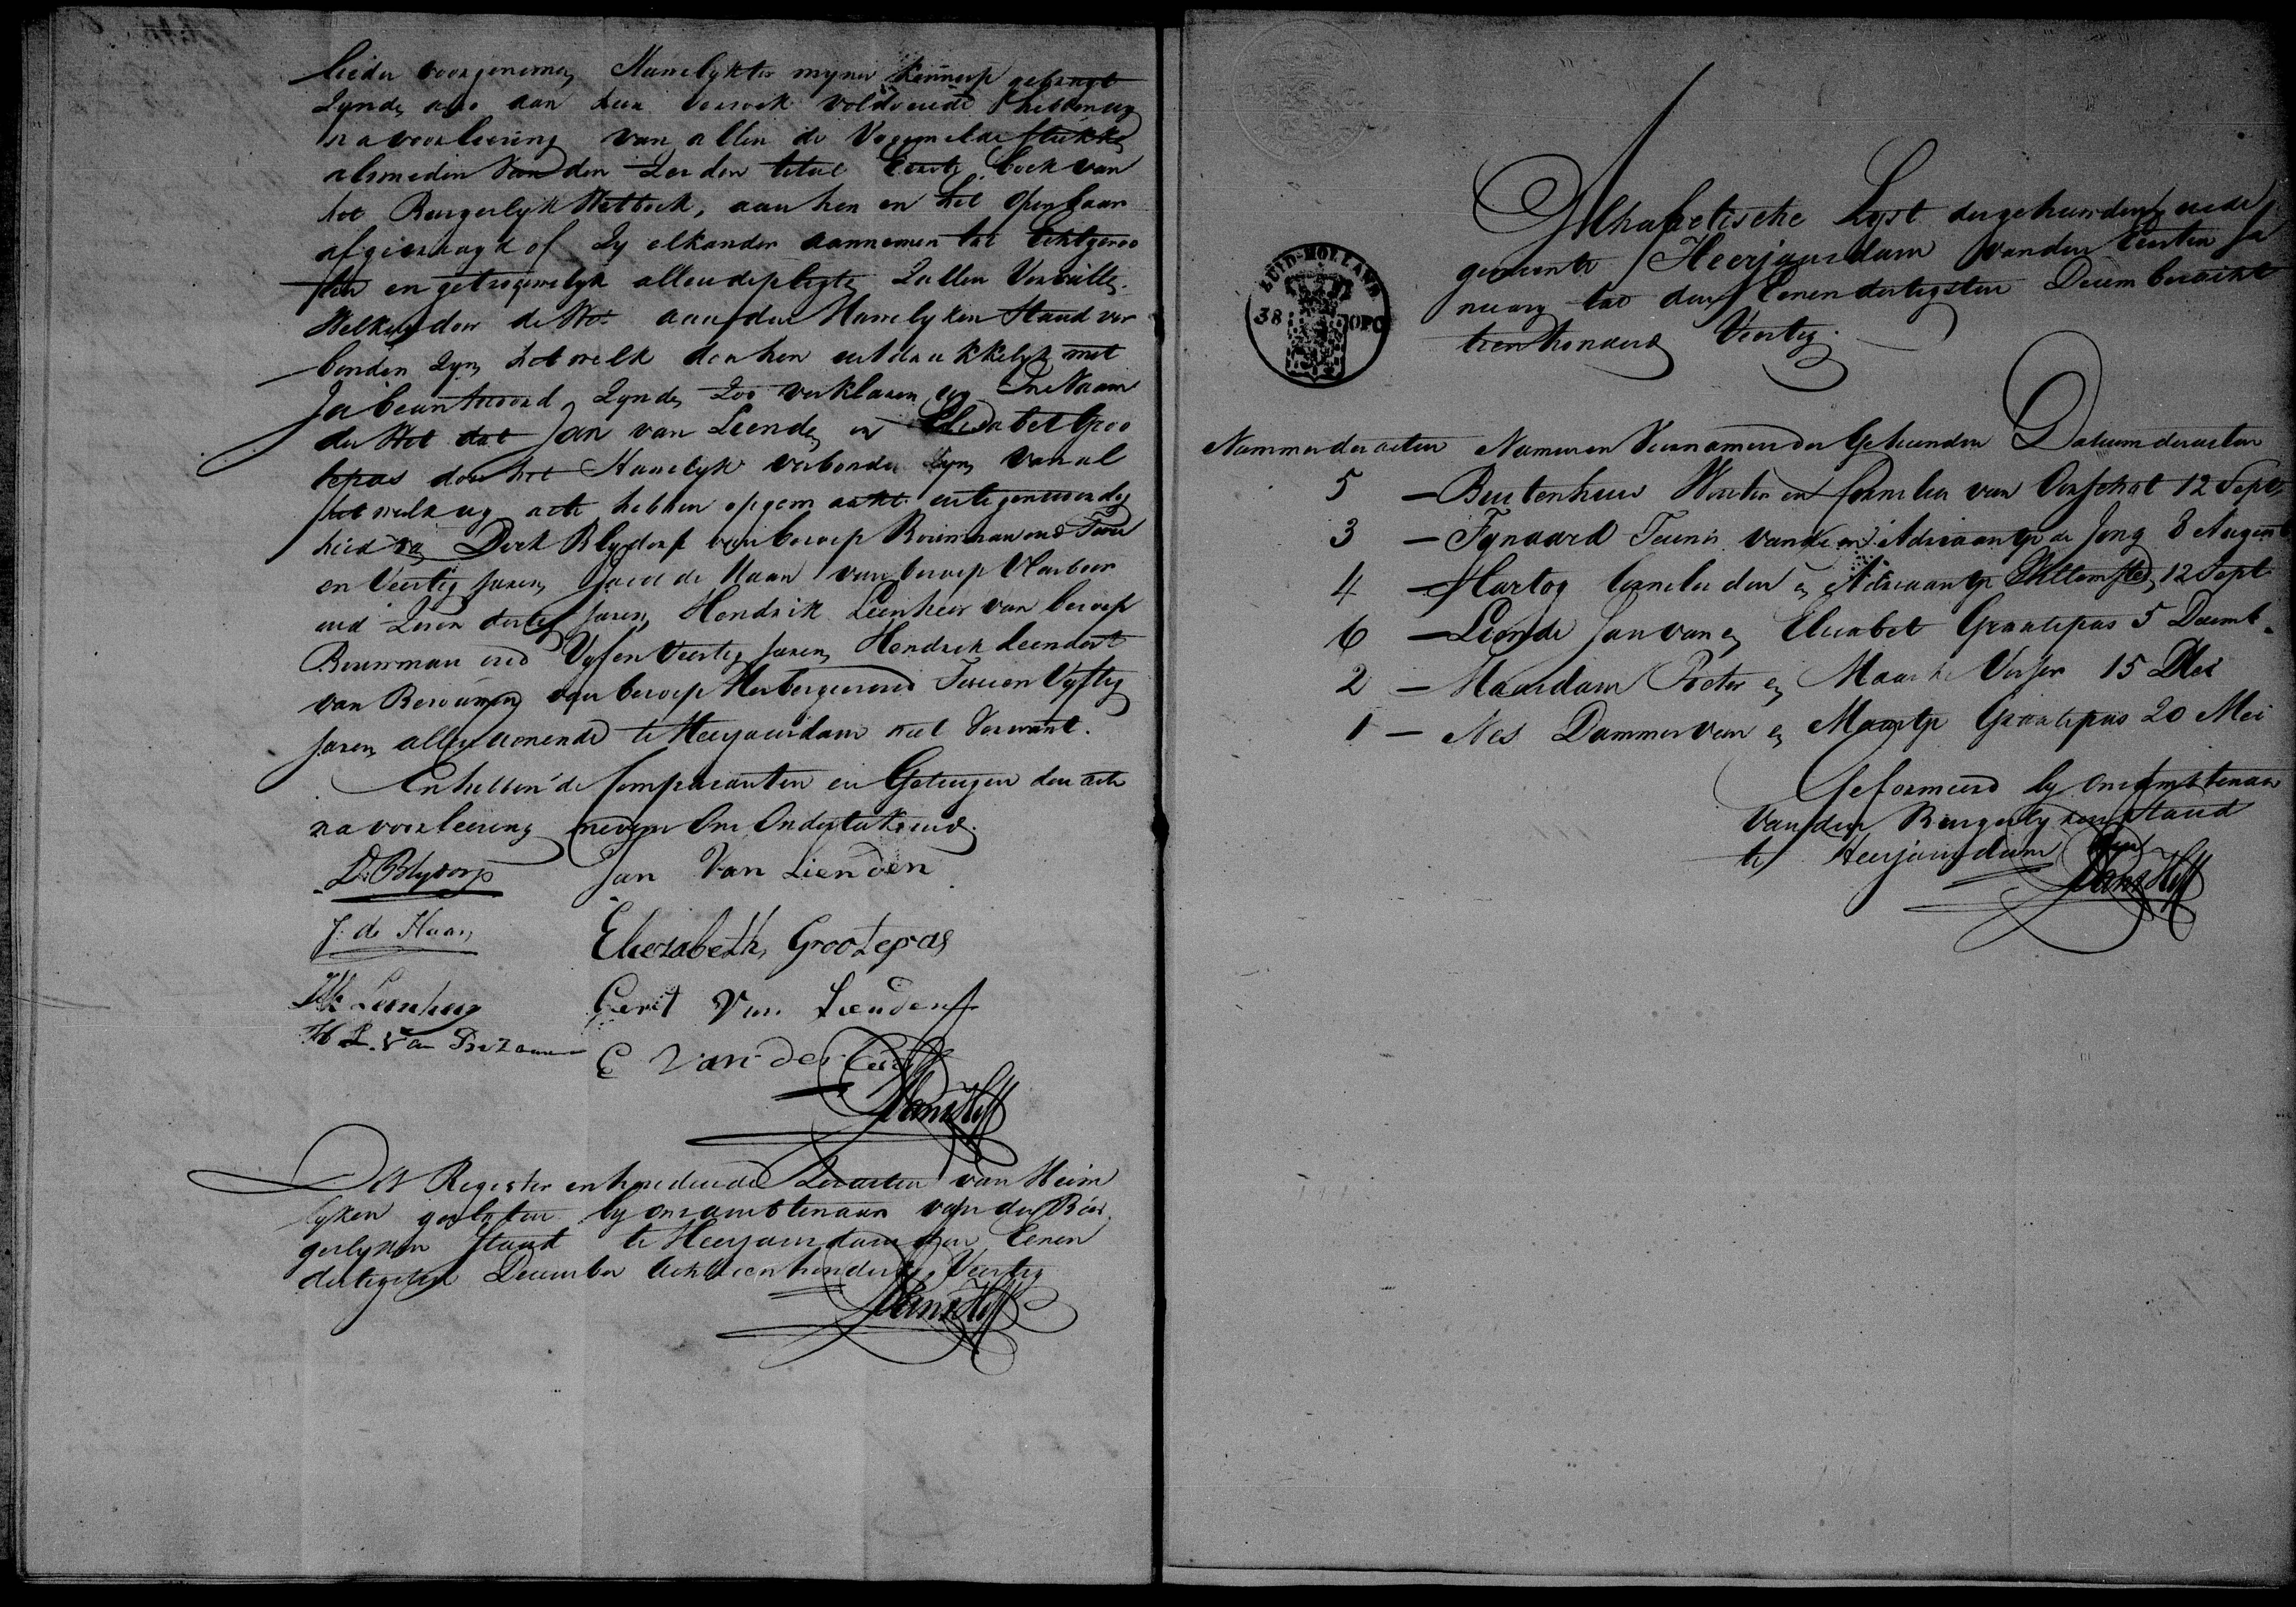 lieder voorgenomen Huwelyk ter myner kennisse gebragt
Zynde, aan hun verzoek voldoende hebben wy
na voorleezing van allen de Voormelde stukken
alsmeden van den Zesden titel Eerste boek van
het Burgerlyk Wetboek, aan hen en het openbaar
afgevraagd of Zy elkander aannemen tot Echtgenoo
ten en getrouwelyk alle de pligten Zullen Vervullen
Welke door de Wet aan den Huwelyken Staat ver
bonden Zyn, het welk door hen uitdrukkelyk met
Ja beantwoord Zynde, Zoo verklaren wy In Naam
der Wet dat Jan van Leende en Elisabet Groo
tepas door het Huwelyk verbonden Zyn, van al
het welk wy acte hebben opgemaakt in tegenwoordig
heid van Dirk Blydorp van beroep Bouwman oud Twee
en Veertig Jaren, Jacob de Haan van beroep Vlasboer
oud Zeven dertig Jaren, Hendrik Leenheer van beroep
Bouwman oud Vyf en Veertig Jaren, Hendrik Leendert
van van beroep Herbergier oud Twee en Vyftig
Jaren, alle wonende te Heerjansdam niet Verwant.
En hebben de Comparanten en Getuigen den acte
na voorleezing nevens Ons Onderteekend.
D. Blydorp Jan Van Lienden
J. de Haan Eliezabeth Grootepas
Hk Leenheer Gerit Van Lienden
H L. Van C Van der
Dit Register inhoudende Zes acten van Huwe
lyken gesloten by ons ambtenaar van den Bur
gerlyken Staat te Heerjansdam den Eenen
dertigsten December Achttienhonderd Veertig
ZUID-HOLLAND
38 OPC
Alphabetische Lyst der gehuwden in de
gemeente Heerjansdam van den Eersten Ja
nuary tot den Eenendertigsten December acht
tienhonderd Veertig.
Nummer der acten Namen en Voornamen der Gehuwden Datum der acten
5 — Buitenhuis Wouter en Cornelia van Oorschot 12 Sept.
3 — Fynaard Teunis van de en Adriaantje de Jong 8 August
4 — Hartog Cornelis den en Adriaantje 12 Sept
6 — Leende Jan van en Elisabet Grootepas 5 Decemb.
2 — Maasdam Pieter en Maartje Visser 15 Mei
1 — Nes Dammes van en Maartje Grootepas 20 Mei
Geformeerd by ons ambtenaar
van den Burgerlyken Staat
te Heerjansdam